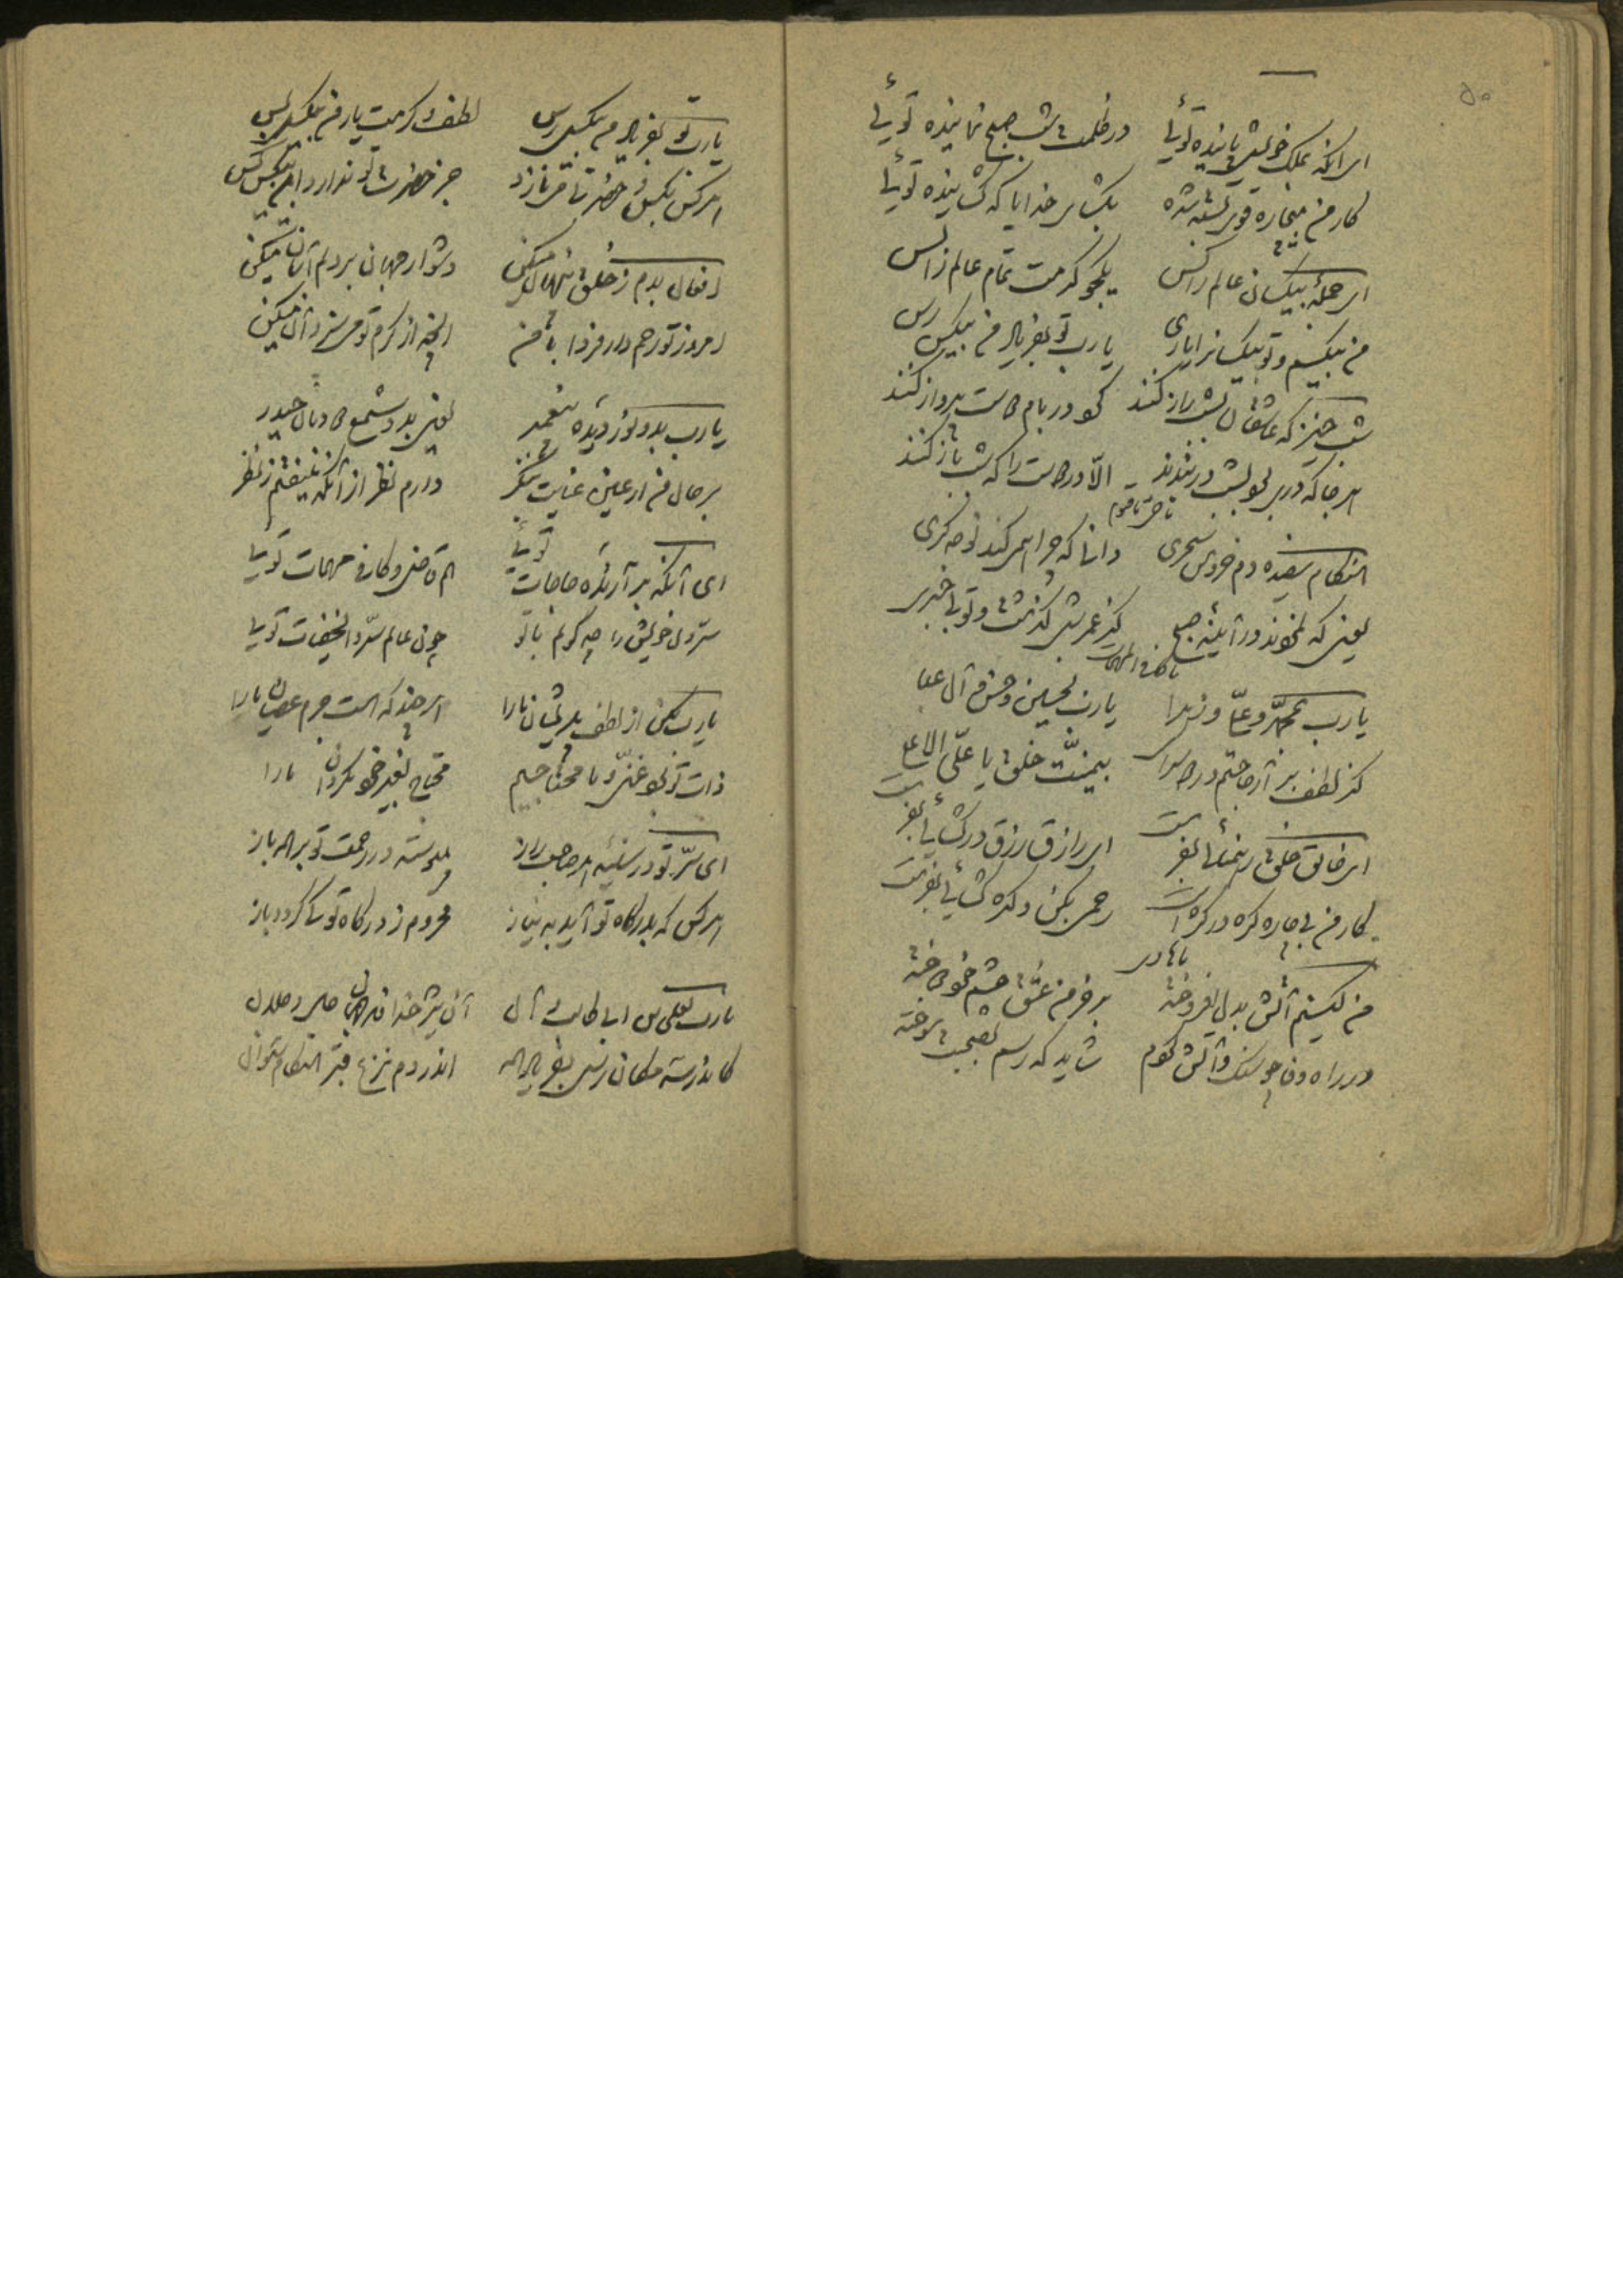 ۵۰
ای آنکه بملک خویش پاینده توئی در ظلمت شب صبح نماینده توئی
کار من بیچاره قوی بسته شده بگشای خدایا که گشاینده توئی
ای جمله بیکسان عالم را کس یکجو کرمت تمام عالم را بس
من بیکسم و تو بیکسانرا یاری یا رب تو بفریاد من بیکس رس
شب خیز که عاشقان بشب راز کنند گرد در بام دوست پرواز کنند
هر جا که دری بود بشب در بندند الا در دوست را که شب باز کنند
هنگام سفیده دم خروس سحری دانی که چرا همی کند نوحه گری
یعنی که نمودند در آیینه صبح کز عمر شبی گذشت و تو بی خبری
یا رب بمحمد و علی و زهرا یا رب بحسین و حسن و آل عبا
کز لطف برآر حاجتم در دو سرا بیمنت خلق یا علی الاعلی
ای خالق خلق رهنمائی بفرست ای رازق رزق در گشائی بفرست
کار من بیچاره گره در گره است رحمی بکن و گره گشائی بفرست
من کیستم آتش بدل افروخته بر خرمن عشق چشم خود دوخته
در راه وفا چو سنگ و آتش گردم شاید که رسم بصحبت سوخته
یا رب تو بفریاد من بیکس رس لطف و کرمت یار من بیکس بس
هر کس بکسی و حضرتی می نازد جز حضرت تو ندارد این بیکس کس
افعال بدم ز خلق پنهان میکن دشوار جهان بر دلم آسان میکن
امروز تو رحم دار فردا با من آنچه از کرم تو می سزد آن میکن
یا رب بدو نور دیده پیغمبر یعنی بدو شمع دودمان حیدر
بر حال من از عین عنایت بنگر دارم نظر از آنکه نیفتم ز نظر
ای آنکه برآرنده حاجات توئی هم قاضی و کافی مهمات توئی
سر دل خویش را چه گویم با تو چون عالم سر و الخفیات توئی
یا رب بکن از لطف پریشان ما را هر چند که هست جرم عصیان ما را
ذات تو بود غنی و ما محتاجیم محتاج بغیر خود مگردان ما را
ای سر تو در سینه هر صاحب راز پیوسته در رحمت تو بر همه باز
هر کس که بدرگاه تو آید به نیاز محروم ز درگاه تو کی گردد باز
یا رب بعلی بن ابی طالب و آل آن شیر خدا
کاندر سه مکان رسی بفریاد همه اندر دم نزع و قبر هنگام سوال